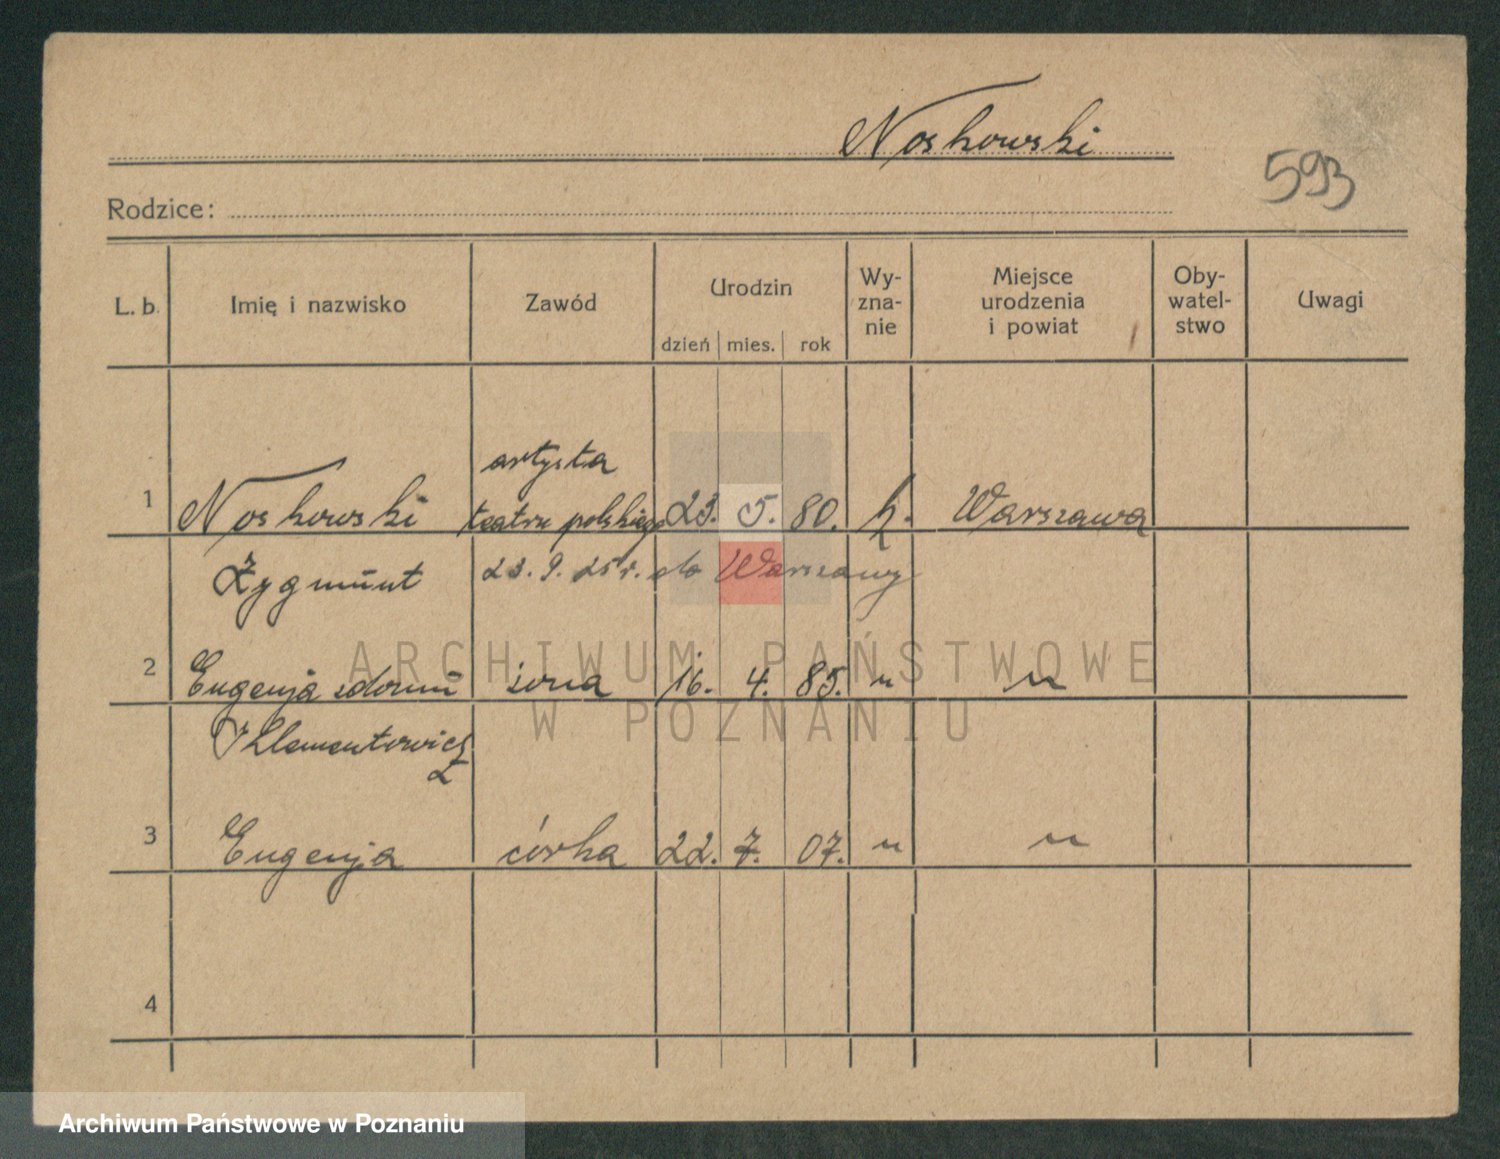 Noskowski
593
Rodzice:
L. b. Imię i nazwisko Zawód Urodzin dzień mies. rok Wy-zna-nie Miejsce urodzenia i powiat Oby-watel-stwo Uwagi
artysta
1 Noskowski teatru polskiego 23. 5. 80. k. Warszawa
Zygmunt 23. 9. 25 r. do Warszawy
2 Eugenja zdomu żona 16. 4. 85. " "
Klementowicz
3 Eugenja córka 22. 7. 07. " "
4
ARCHIWUM PAŃSTWOWE
W POZNANIU
Archiwum Państwowe w Poznaniu